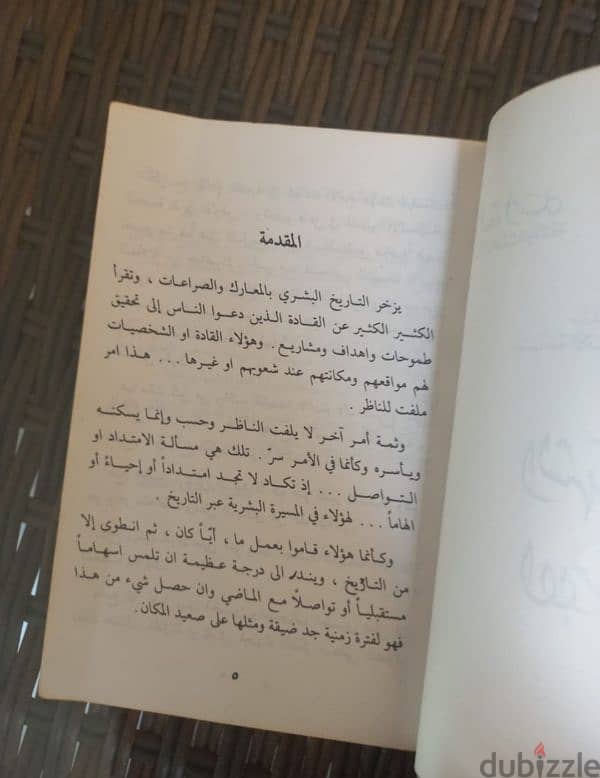 المقدمة
يزخر التاريخ البشري بالمعارك والصراعات ، وتقرأ
الكثير الكثير عن القادة الذين دعوا الناس إلى تحقيق
طموحات واهداف ومشاريع . وهؤلاء القادة او الشخصيات
لهم مواقعهم ومكانتهم عند شعوبهم او غيرها ... هذا امر
ملفت للناظر .
وثمة أمر آخر لا يلفت الناظر وحسب وإنما يسكنه
ويأسره وكأنما في الأمر سرّ . تلك هي مسألة الامتداد او
التواصل ... إذ تكاد لا تجد امتداداً أو إحياءً أو
الهاماً ... لهؤلاء في المسيرة البشرية عبر التاريخ .
وكأنما هؤلاء قاموا بعمل ما ، أيّاً كان ، ثم انطوى إلا
من التاريخ ، ويندر الى درجة عظيمة ان تلمس اسهاماً
مستقبلياً أو تواصلاً مع الماضي وان حصل شيء من هذا
فهو لفترة زمنية جد ضيقة ومثلها على صعيد المكان.
٥
dubizzle